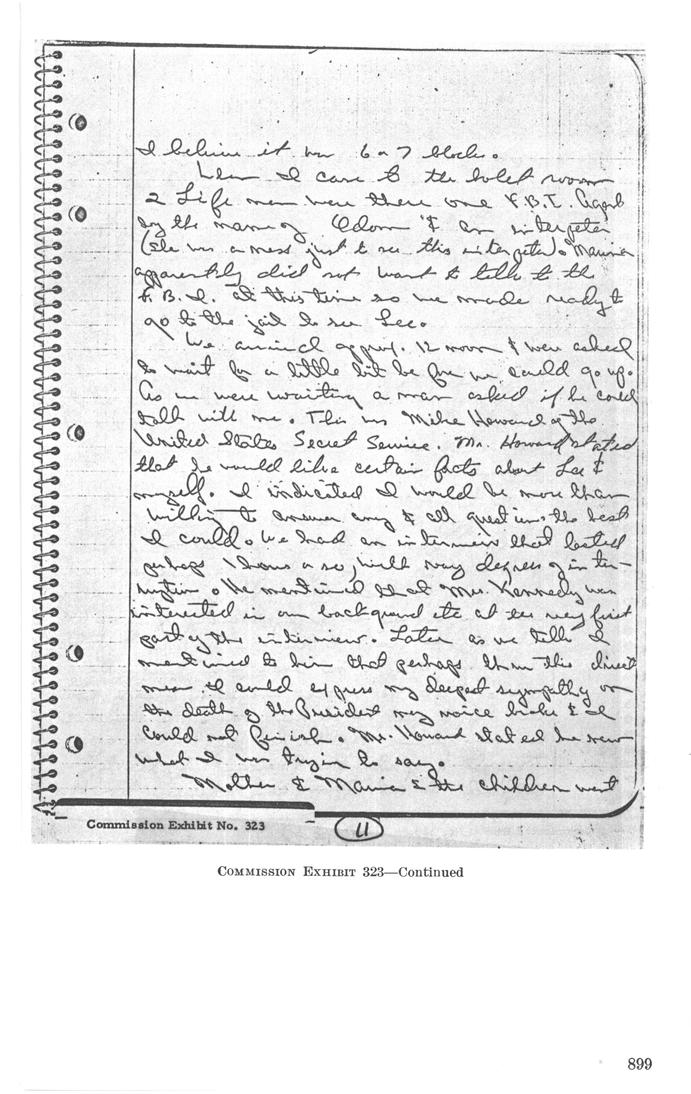 I believe it was 6 or 7 blocks.
When I came to the hotel room
2 Life men were there one F.B.I. Agent
by the name of Odom & an interpeter
(she was a mess just to see this interpeter). Marina
apparently did not want to talk to the
F.B.I. at this time so we made ready to
go to the jail to see Lee.
We arrived approx. 12 noon & were asked
to wait for a little bit before we could go up.
As we were waiting a man asked if he could
talk with me. This was Mike Howard of the
United States Secret Service. Mr. Howard stated
that he would like certain facts about Lee &
myself. I indicated I would be more than
willing to answer any & all questions the best
I could. We had an interview that lasted
perhaps 1 hour or so, with degrees of inter-
ruption. He mentioned that Mrs. Kennedy was
interested in our background etc at the very first
part of the interview. Later as we talk I
mentioned to him that perhaps thru this direct
mean I could express my deepest sympathy on
the death of the President my voice broke & I
could not finish. Mr. Howard stated he knew
what I was trying to say.
Mother & Marina & the children went
Commission Exhibit No. 323
11
COMMISSION EXHIBIT 323—Continued
899